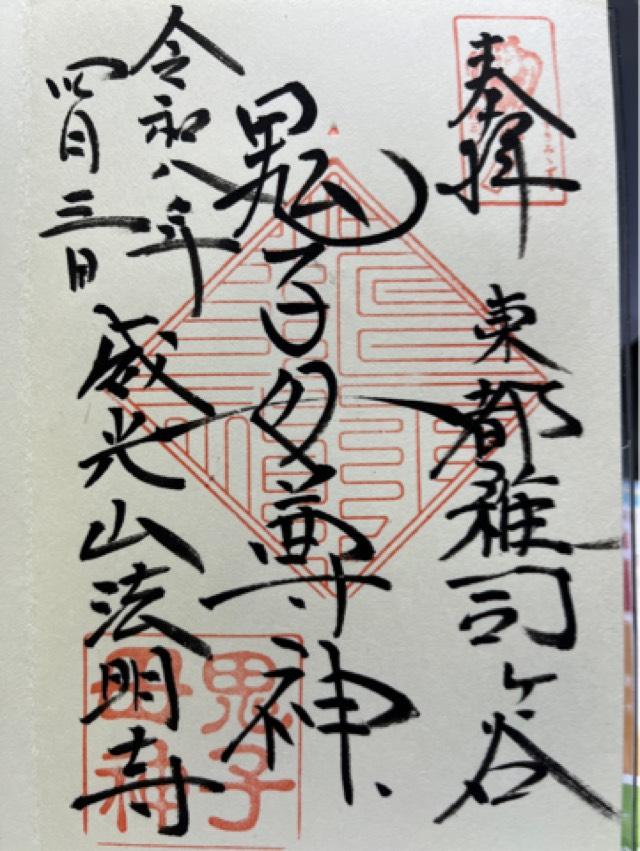 奉拝
東都雑司ヶ谷
鬼子母尊神
令和八年
四月三日
威光山法明寺
鬼子
母神